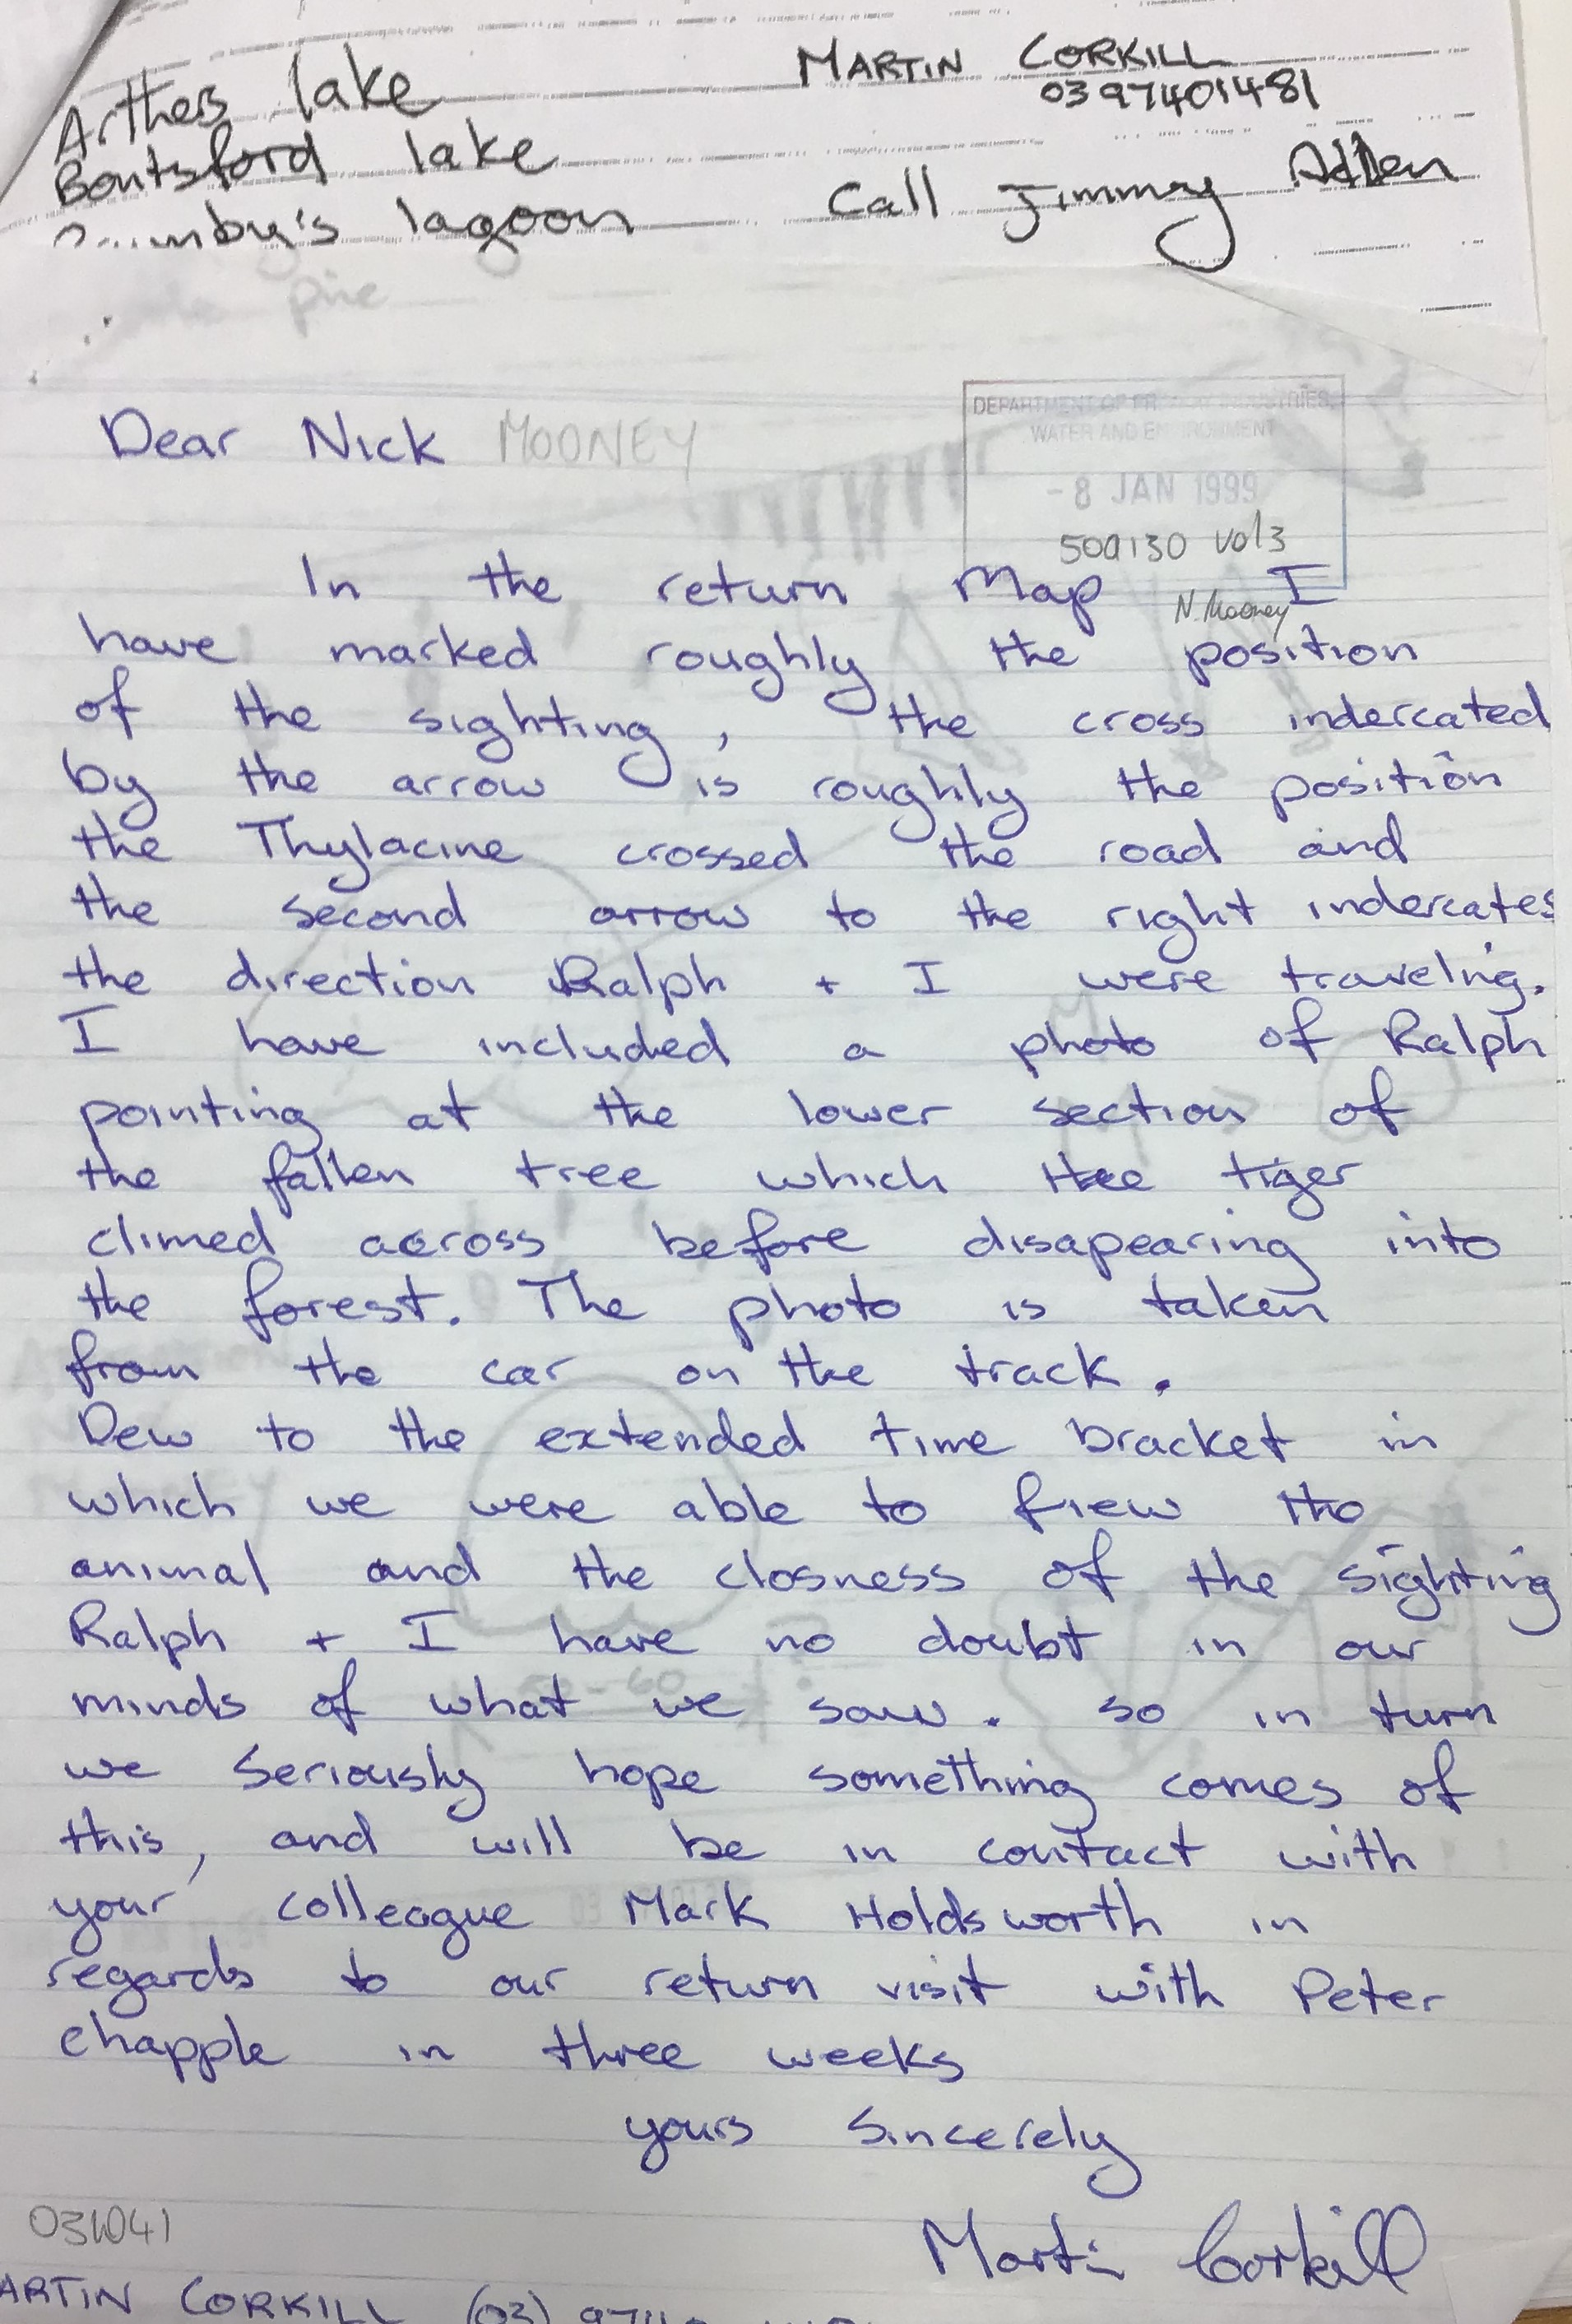 Arthers lake
Bontsford lake
lagoon
MARTIN CORKILL
0397401481
Call Jimmey Adlen
pine
Dear Nick MOONEY
DEPARTMENT OF PRIMARY INDUSTRIES,
WATER AND ENVIRONMENT
-8 JAN 1999
500130 vol3
N. Mooney
In the return Map I
have marked roughly the position
of the sighting, the cross indercated
by the arrow is roughly the position
the Thylacine crossed the road and
the second arrow to the right indercates
the direction Ralph + I were travelng.
I have included a photo of Ralph
pointing at the lower section of
the fallen tree which thee tiger
climed across before disapearing into
the forest. The photo is taken
from the car on the track.
Dew to the extended time bracket in
which we were able to fiew the
animal and the closness of the sighting
Ralph + I have no doubt in our
minds of what we saw. so in turn
we seriously hope something comes of
this, and will be in contact with
your colleague Mark Holdsworth in
regards to our return visit with Peter
chapple in three weeks
yours sincerely
Martin Corkill
031041
ARTIN CORKILL (03)